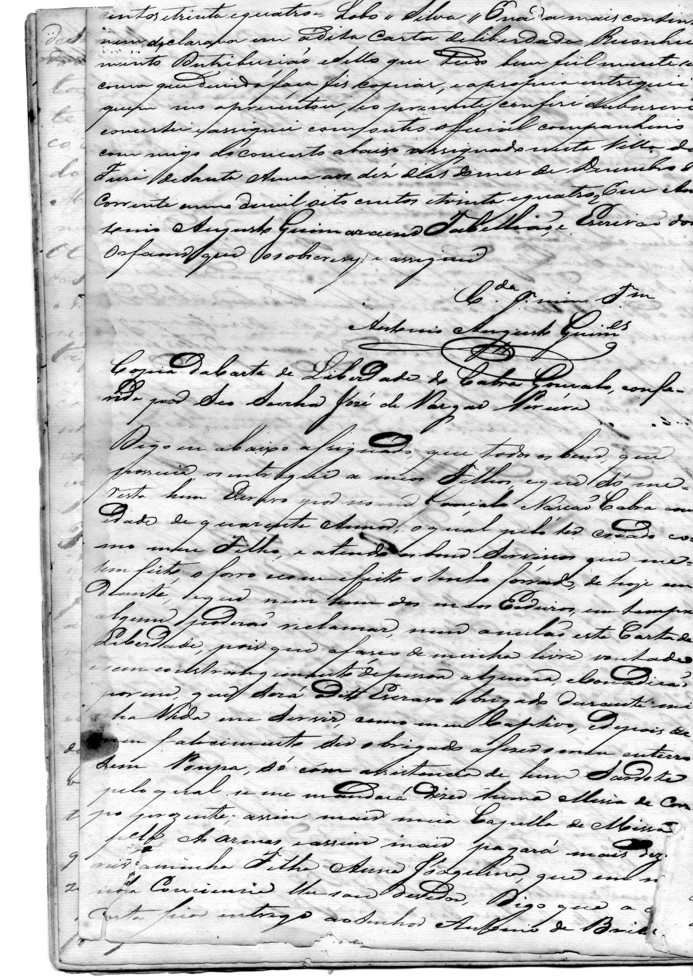 centos e trinta e quatro = Lobo & Silva
declarava em a Dita Carta de liberdade Reconheci
mento Distribuição e Sello que tudo bem fiel mente
couza que duvida faça fis copiar, e a propria entreguei
quem me apresentou, e o prezente conferi subscrevi
concertei e assignei com outro oficial companheiro
com migo do concerto abaixo assignado nesta Villa do
de Santa Anna aos déz dias do mez de Dezembro
corrente anno de mil oito centos e trinta e quatro, Eu An
tonio Augusto Guimaraens Tabelliaõ e Escrivaõ dos
Orfaons que o sobscrevy e assignei
C.da
Antonio Augusto Guim.es
Copia Da Carta de Liberdade do Cabra Gonçalo, confe-
rida por Seo Senhor José de Vargas Pereira
Digo eu abaixo assignado, que todos os bens, que
possuia os entreguei a meos Filhos, e que só me
resta hum Escravo por nome Gonçalo Naçaõ Cabra com
idade de quarenta Annos, o qual pelo ter criado co
mo meu Filho, e atendendo os bons Servicos que me
tem feito o forro como efeito o tenho forrado de hoje em
Diante, e que nem hum dos meus Erdeiros, em tempo
algum poderaõ reclamar, nem anular esta Carta de
Liberdade, pois que a faco de minha livre vontade
e sem constrangimento de pessoa alguma e com Condicaõ
porem, que será o dito Escravo obrigado durante mi
nha Vida me Servir, como meu Captivo, e Depois de
meu falecimento ser obrigado a fazer o meu enterro
sem Pompa, só com assistencia de hum Sacerdote
pelo qual se me mandará dizer huma Missa de Cor
po prezente, assim mais meia Capella de Missas
Almas e assim mais pagará mais
a minha Filha Anna que em
Conciencia lhe sou devedor, Digo que a
Carta fica entregue ao Senhor Antonio de